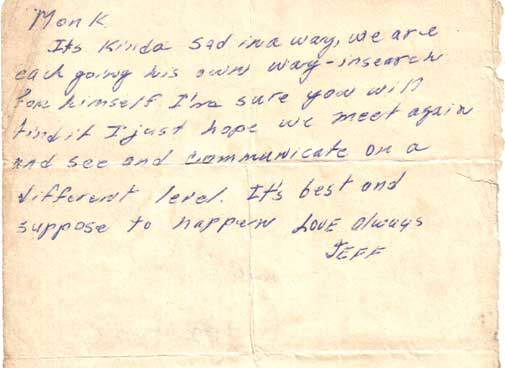 Monk
Its kinda sad in a way, we are
each going his own way-insearch
for himself I'm sure you will
find it I just hope we meet again
and see and communicate on a
different level. It's best and
suppose to happen Love always
JEFF